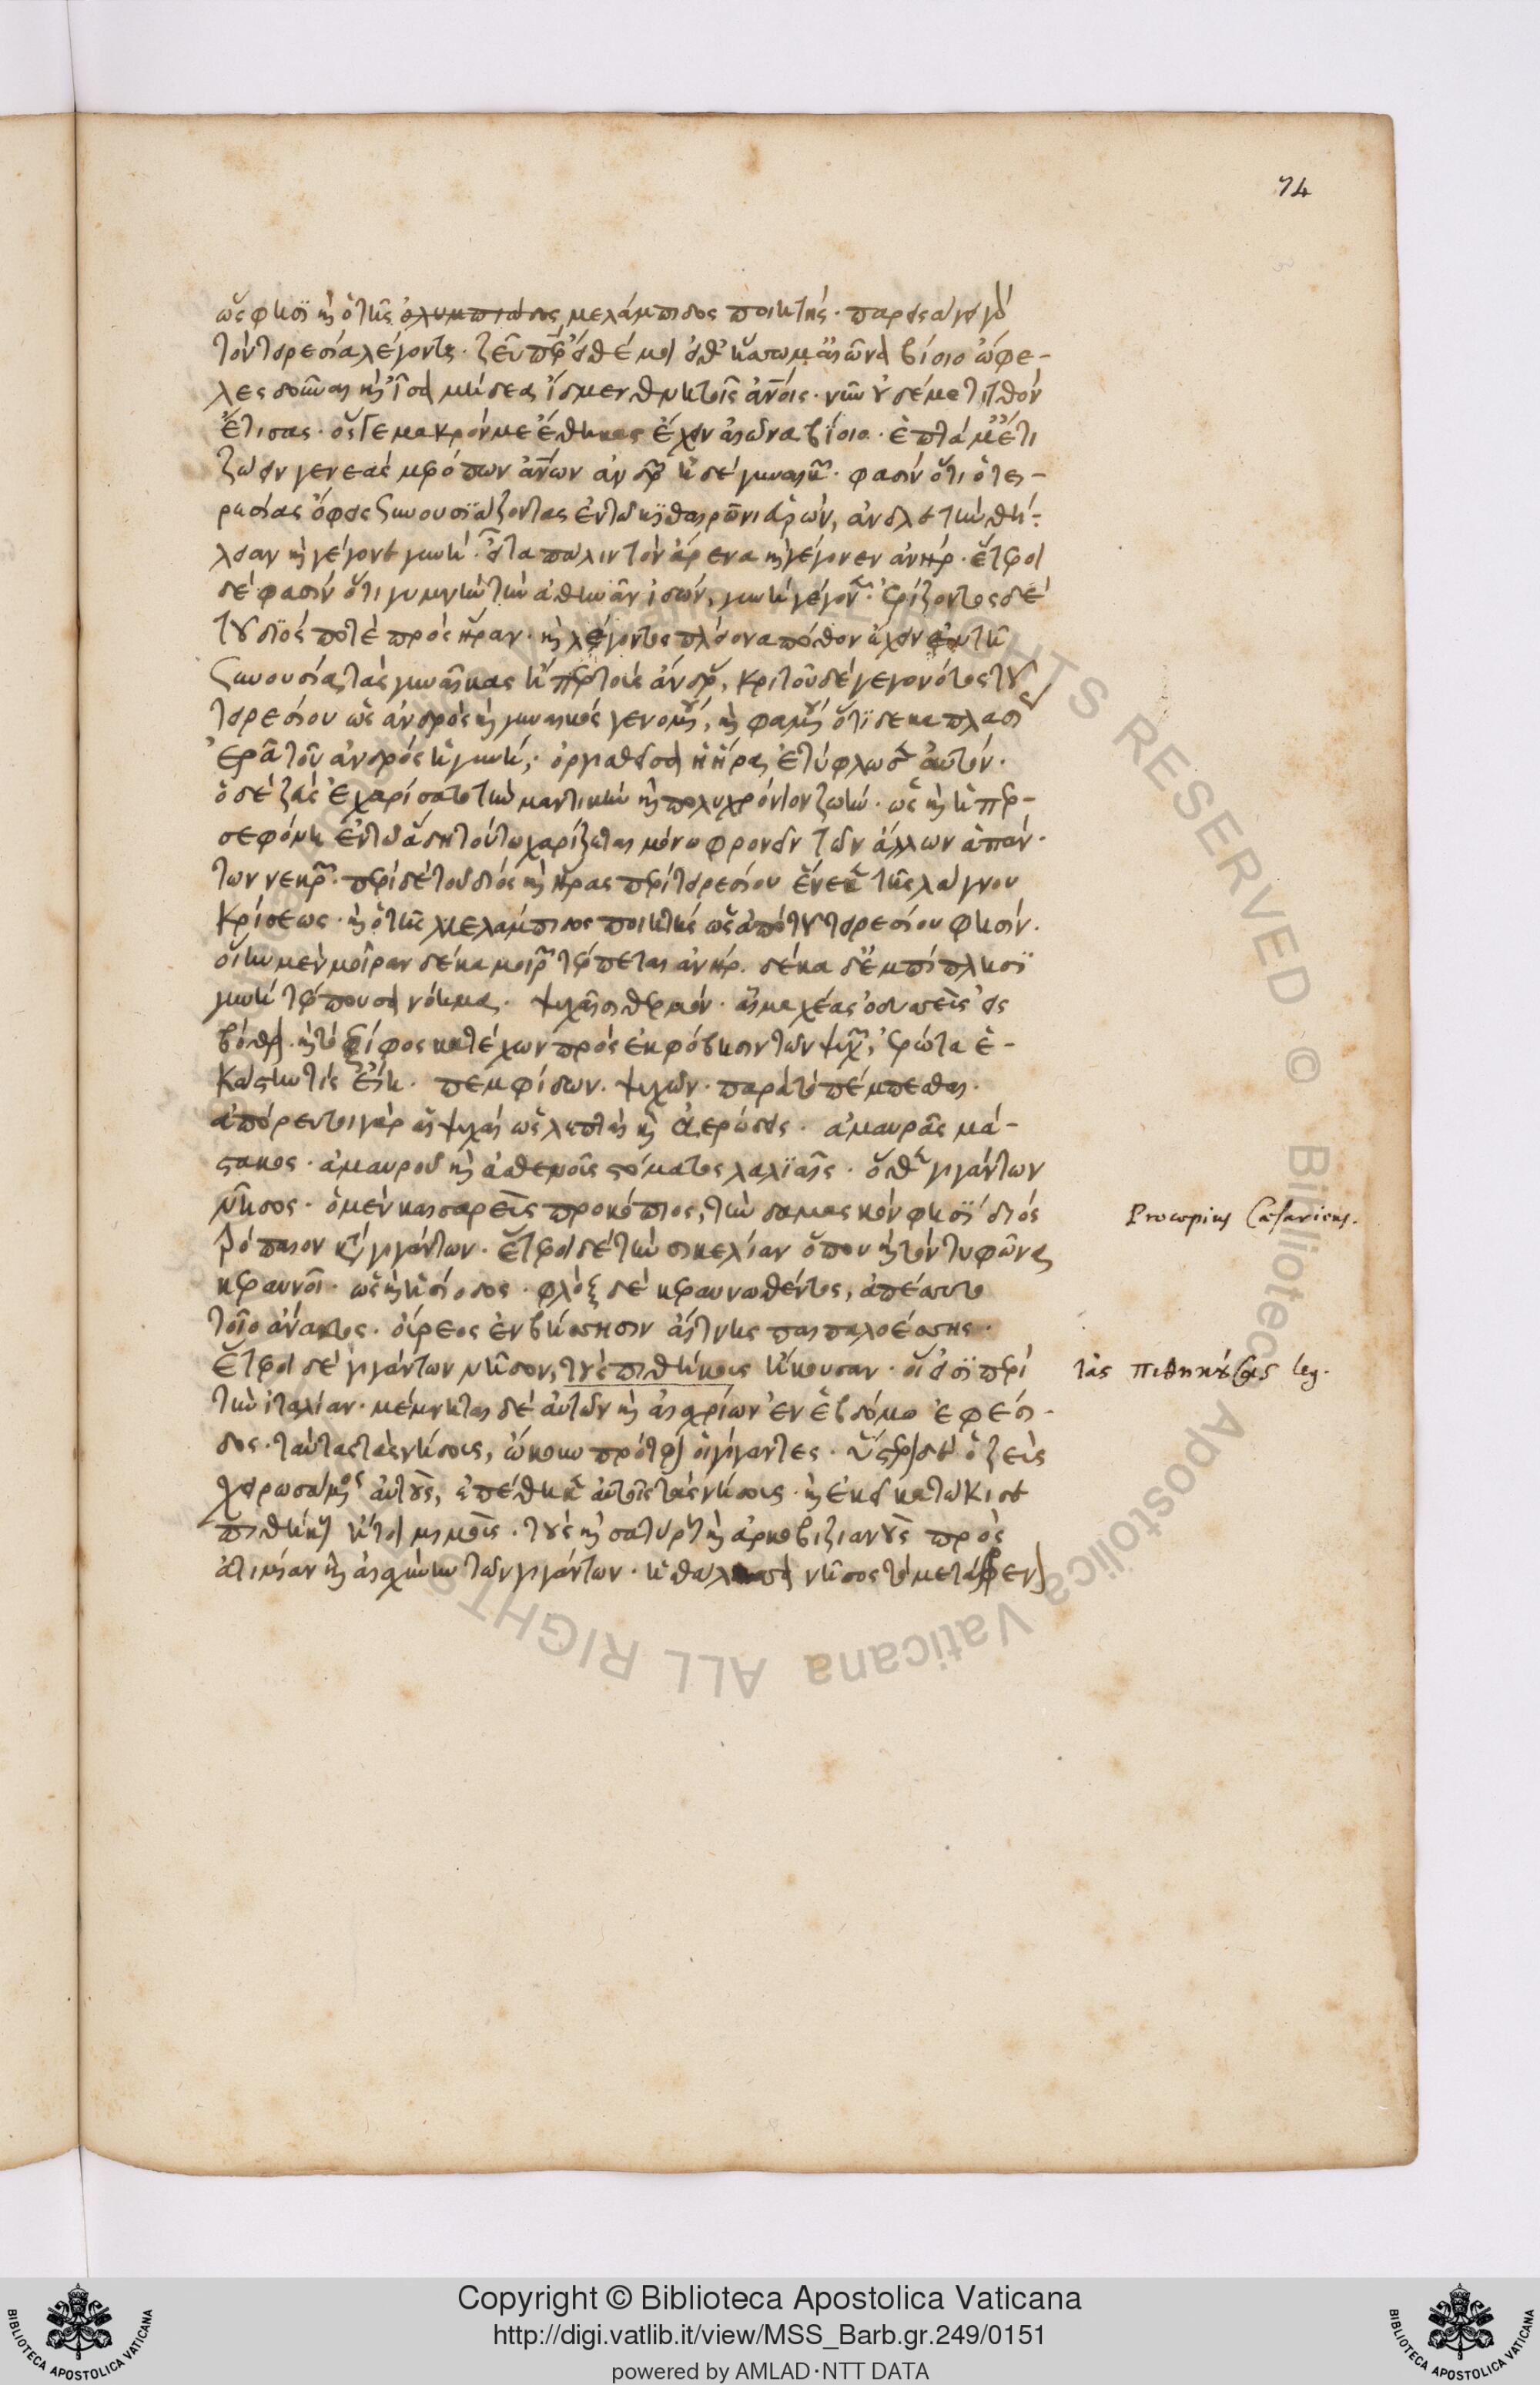 74
ὥς φησι καὶ ὁ τῆς ὀλυμπιάδος μελάμπιδος ποιητής · παρεισάγει γὰρ
τὸν τειρεσίαν λέγοντα · ζεῦ πάτερ εἴθέ μοι εἴθ' ἥσσω μ' αἰῶνα βίοιο ὤφε-
λες δοῦναι καὶ ἶσα μήδεα ἴδμεν θνητοῖς ἀνοις · νῦν δ' οὐδέ με τυτθὸν
ἔτισας · ὅς γε μακρόν με ἔθηκας ἔχειν αἰῶνα βίοιο · ἑπτά τ' ἔτι
ζώειν γενεὰς μερόπων ἀνων
ἀνδρὸς ἠδὲ γυναικός · φασὶν ὅτι ὁ τει-
ρεσίας ὄφεις συνουσιάζοντας ἐν τῷ κιθαιρῶνι εὑρών, ἀνεῖλε τὴν θή-
λειαν καὶ γέγονε γυνή · εἶτα πάλιν τὸν ἄρενα καὶ γέγονεν ἀνήρ · ἕτεροι
δέ φασιν ὅτι γυμνὴν τὴν ἀθηνᾶν ἰδών, γυνὴ γέγονε · ἐρίζοντος δὲ
τοῦ διός ποτε πρὸς ἥραν · καὶ λέγοντος πλείονα πόθον ἔχειν ἐν τῇ
συνουσίᾳ τὰς γυναῖκας ἤπερ τοὺς ἄνδρας, κριτοῦ δὲ γεγονότος τοῦ
τειρεσίου ὡς ἀνδρὸς καὶ γυναικὸς γενομένου, καὶ φαμένου ὅτι δεκαπλασί
ἐρᾷ τοῦ ἀνδρὸς ἡ γυνή, · ὀργισθεῖσα ἡ ἥρα, ἐτύφλωσεν αὐτόν ·
ὁ δὲ ζεὺς ἐχαρίσατο τὴν μαντικὴν καὶ πολυχρόνιον ζωήν · ὡς καὶ ἡ περ-
σεφόνη ἐν τῷ ᾅδῃ τούτῳ χαρίζεται μόνῳ φρονεῖν τῶν ἄλλων ἁπάν-
των νεκρῶν · περὶ δὲ τοῦ διὸς καὶ ἥρας περὶ τειρεσίου ἕνεκα τῆς λάγνου
κρίσεως · καὶ ὁ τῆς μελαμπίδος ποιητὴς ὡς ἀπὸ τοῦ τειρεσίου φησίν ·
οἴην μὲν μοῖραν δέκα μοιρῶν τέρπεται ἀνήρ · δέκα δ' ἐμπίπλησι
γυνὴ τέρπουσα νόημα · ψυχαῖσι θερμόν · αἷμα χέας ὀδυσεὺς εἰς
βόθρον · καὶ τὸ ξίφος κατέχων πρὸς ἐκφόβησιν τῶν ψυχῶν, ἐρώτα ἑ-
κάστη τίς εἴη · πεμφίδων · ψυχῶν · παρὰ τὸ πέμπεσθαι ·
ἀπόρευτοι γὰρ αἱ ψυχαὶ ὡς λεπταὶ καὶ ἀερώδεις · ἀμαυρᾶς μά-
στακος · ἀμαυροῦ καὶ ἀσθενοῦς στόματος λαλιαῖς · ὅθεν γιγάντων
νῆσος · ὁ μὲν καισαρεὺς προκόπιος, τὴν δαμασκόν φησι διὸς
τρόπαιον κατὰ γιγάντων · ἕτεροι δὲ τὴν σικελίαν ὅπου καὶ τὸν τυφῶνα
κεραυνοῖ · ὡς καὶ ἡσίοδος · φλὸξ δὲ κεραυνωθέντος, ἀπέσσυτο
τοῖο ἄνακτος · οὔρεος ἐν βήσσῃσιν αἴτνης παιπαλοέσσης ·
ἕτεροι δὲ γιγάντων νῆσον, τοὺς πιθήκους ἤκουσαν · οἵ εἰσι περὶ
τὴν ἰταλίαν · μέμνηται δὲ αὐτῶν καὶ αἰσχρίων ἐν ἑβδόμῳ ἐφεσί-
δος · ταύτας τὰς νήσους, ᾤκουν πρότερον οἱ γίγαντες · ὕστερον δὲ ὁ ζεὺς
χειρωσάμενος αὐτούς, ἐπέθηκεν αὐτοῖς τὰς νήσους · καὶ ἐκεῖ κατῴκισε
πιθήκους ἤτοι μιμοῦς · τοὺς καὶ σατύρους καὶ ἀρκοβιζιανοὺς πρὸς
ἀτιμίαν καὶ αἰσχύνην τῶν γιγάντων · ἡ θάλασσα νῆσος τὸ μετάφρενον
Procopius Cæsariens.
τὰς πιθηκούσας leg.
Copyright © Biblioteca Apostolica Vaticana
http://digi.vatlib.it/view/MSS_Barb.gr.249/0151
powered by AMLAD·NTT DATA
BIBLIOTECA APOSTOLICA VATICANA
BIBLIOTECA APOSTOLICA VATICANA
© Biblioteca Apostolica Vaticana ALL RIGHTS RESERVED